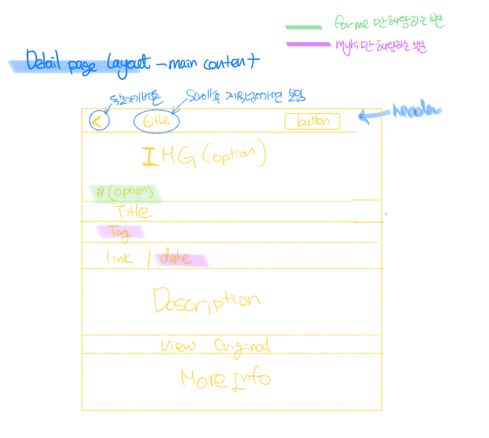 for me 만 해당하는 부분
myki만 해당하는 부분
Detail page Layout - main content
뒤로가기버튼
Scroll 후 지정넘어가면 보임
<
title
button
header
IMG (option)
# (option)
Title
Tag
link | date
Description
View Original
More Info